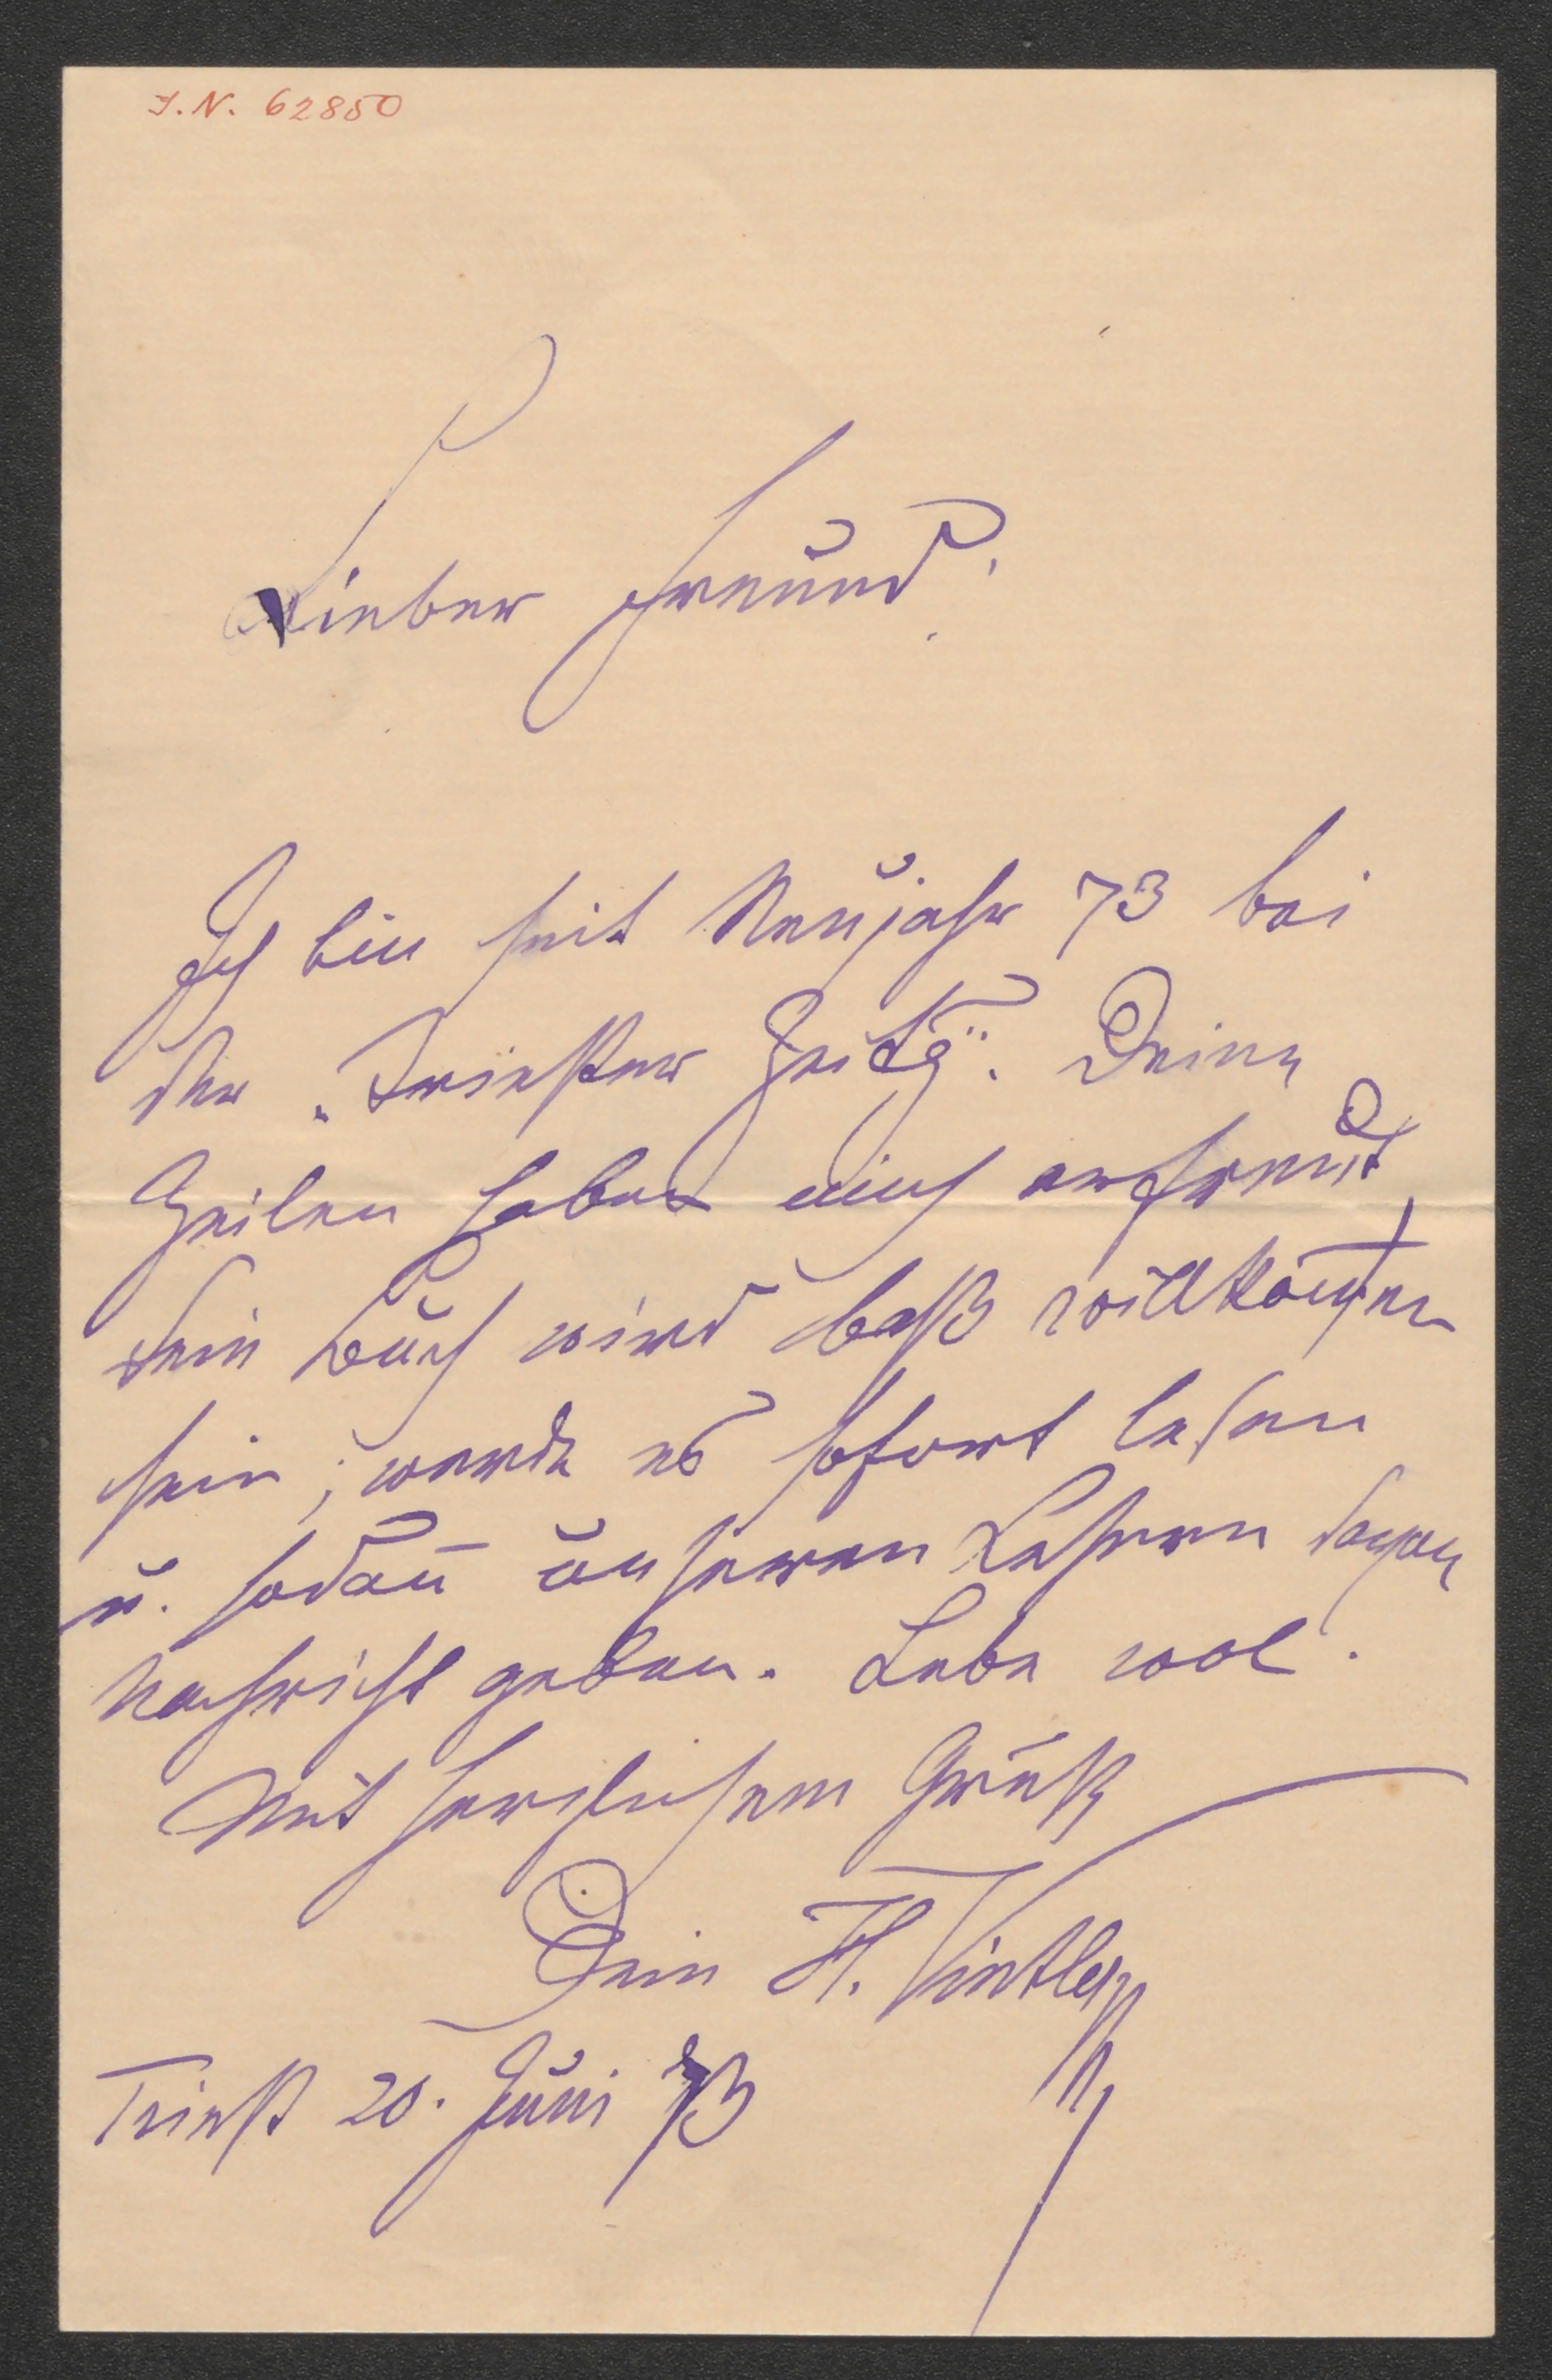 I.N. 62850
Lieber Freund!
Ich bin seit Neujahr 73 bei
der „Triester Zeitg“. Deine
Zeilen haben mich erfreut,
dein Buch wird baß willkom̅en
sein; werde es sofort lesen
u. sodan̅ unseren Lesern davon
Nachricht geben. Lebe wol.
Mit herzlichem Gruß
Dein H. Vintler
Triest 20. Juni 73